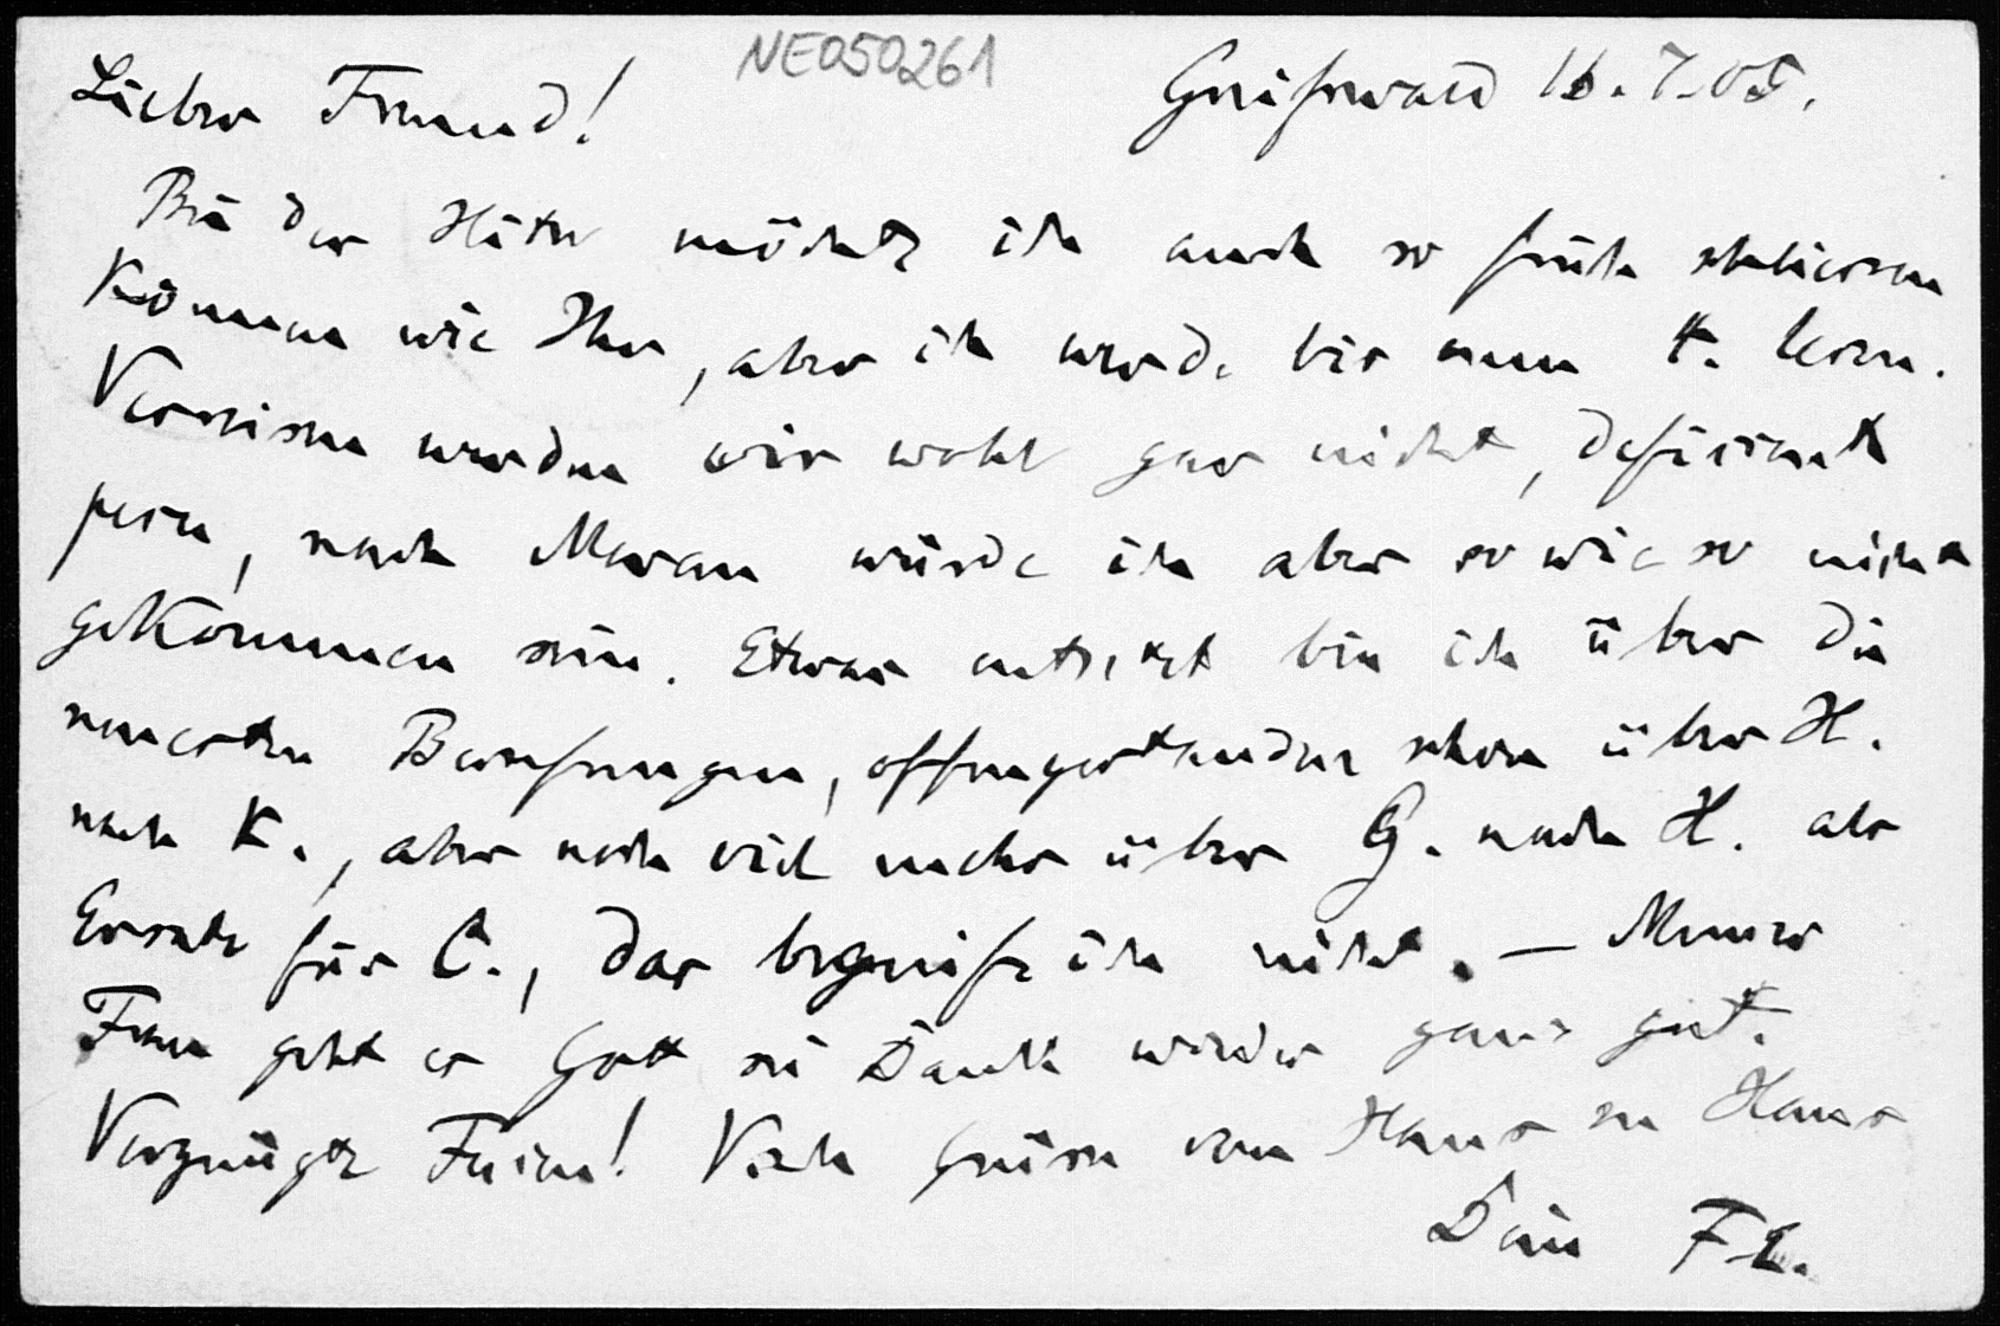 NE050261
Greifswald 16.7.05.
Lieber Freund!
Bei der Hitze möchte ich auch so früh schliessen
können wie Ihr, aber ich werde bis zum 4. lesen.
Verreisen werden wir wohl gar nicht, deficiente
pecu, nach Meran würde ich aber sowieso nicht
gekommen sein. Etwas entsetzt bin ich über die
neuesten Berufungen, offengestanden schon über H.
nach K., aber noch viel mehr über G. nach H. als
Ersatz für C., das begreife ich nicht. — Meiner
Frau geht es Gott sei Dank wieder ganz gut.
Vergnügte Ferien! Viele Grüsse von Haus zu Haus
Dein F.E.